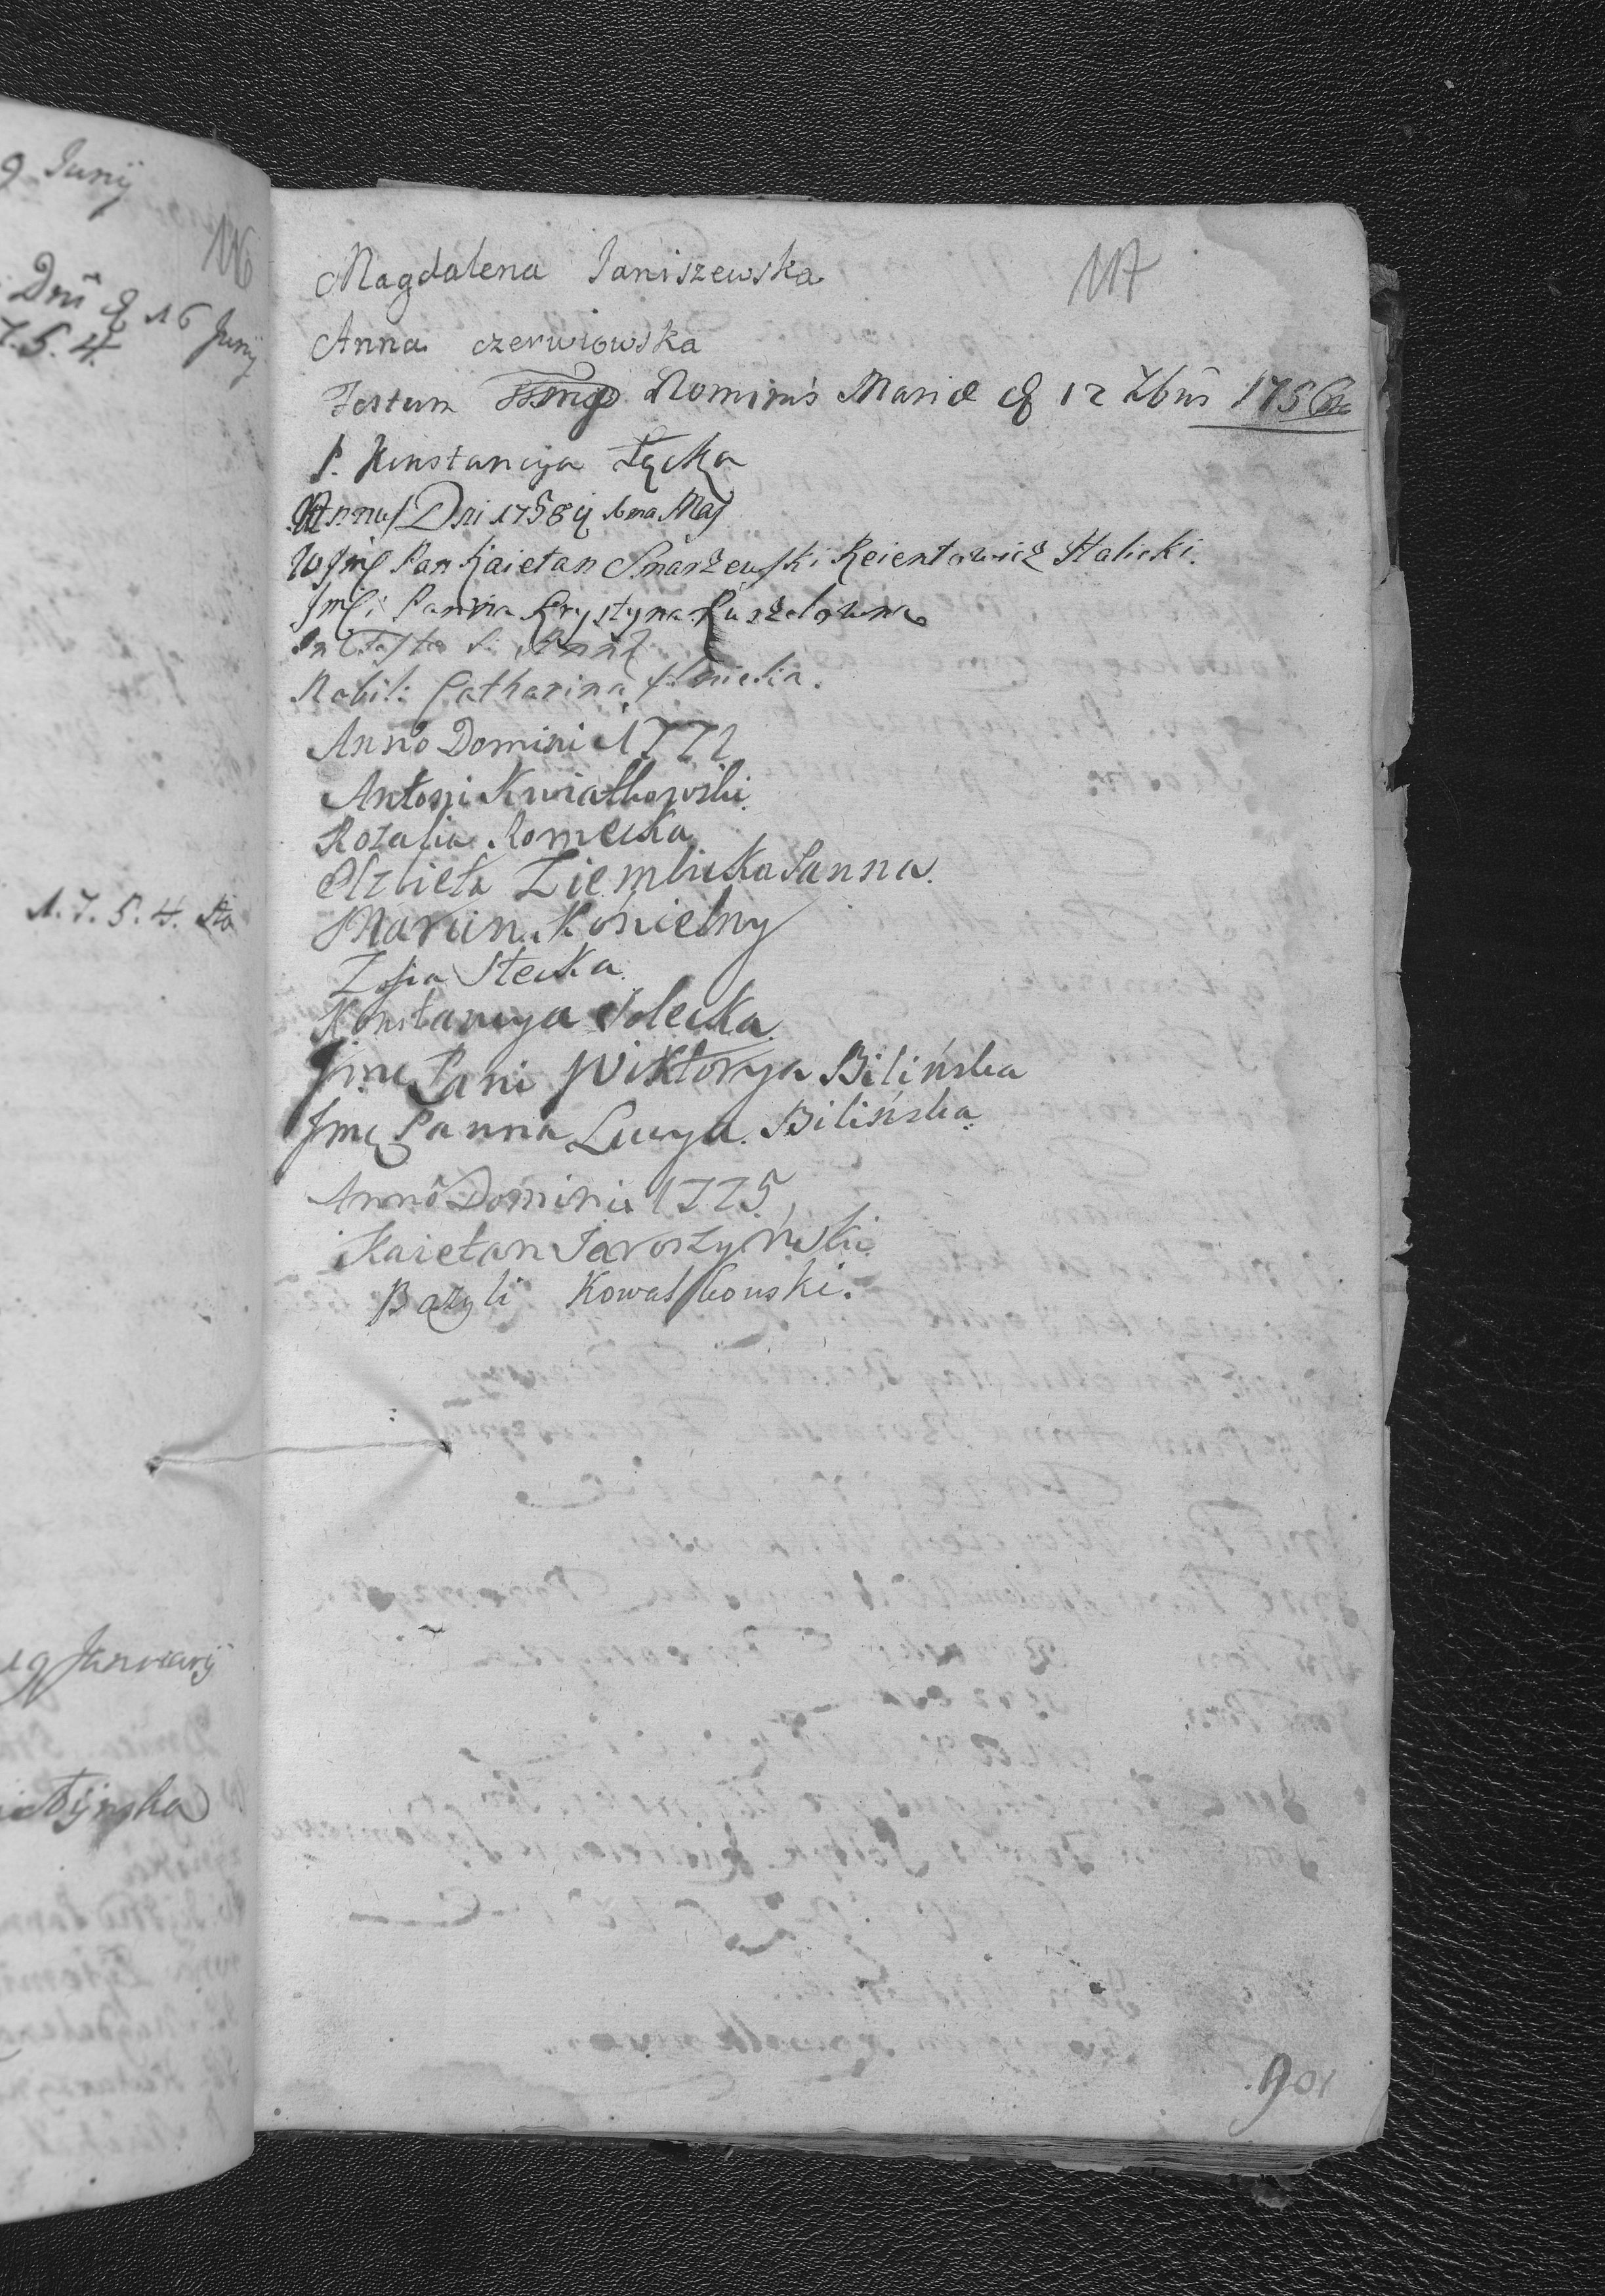 9 Junij
116
Dni d 16 Junij
7.5.4.
1.7.5.4.
19 Januarij
117
Magdalena Janiszewska
Anna czerwiowska
Festum Nominis Mariæ d 12 7bris 1756
P. Konstancya Łącka
Annus Dni 1758 Maj
WJmę Pan Kaietan Snarzewski Reientowicz Halicki.
Jmci Panna Krystyna Ruszelowna
In Festo S. Annæ
Nobil: Catharina
Anno Domini 1772
Antoni Kwiatkowski
Rozalia Romecka
Elzbieta Ziemblicka Panna.
Marcin Konielny
Zofia Stecka.
Konstancya Solecka.
Jmc Pani Wiktorya Bilińska
Jmc Panna Lucya. Bilińska.
Anno Domini 1775
Kaietan Jaroszyński
Bazyli Kowalkowski.
901